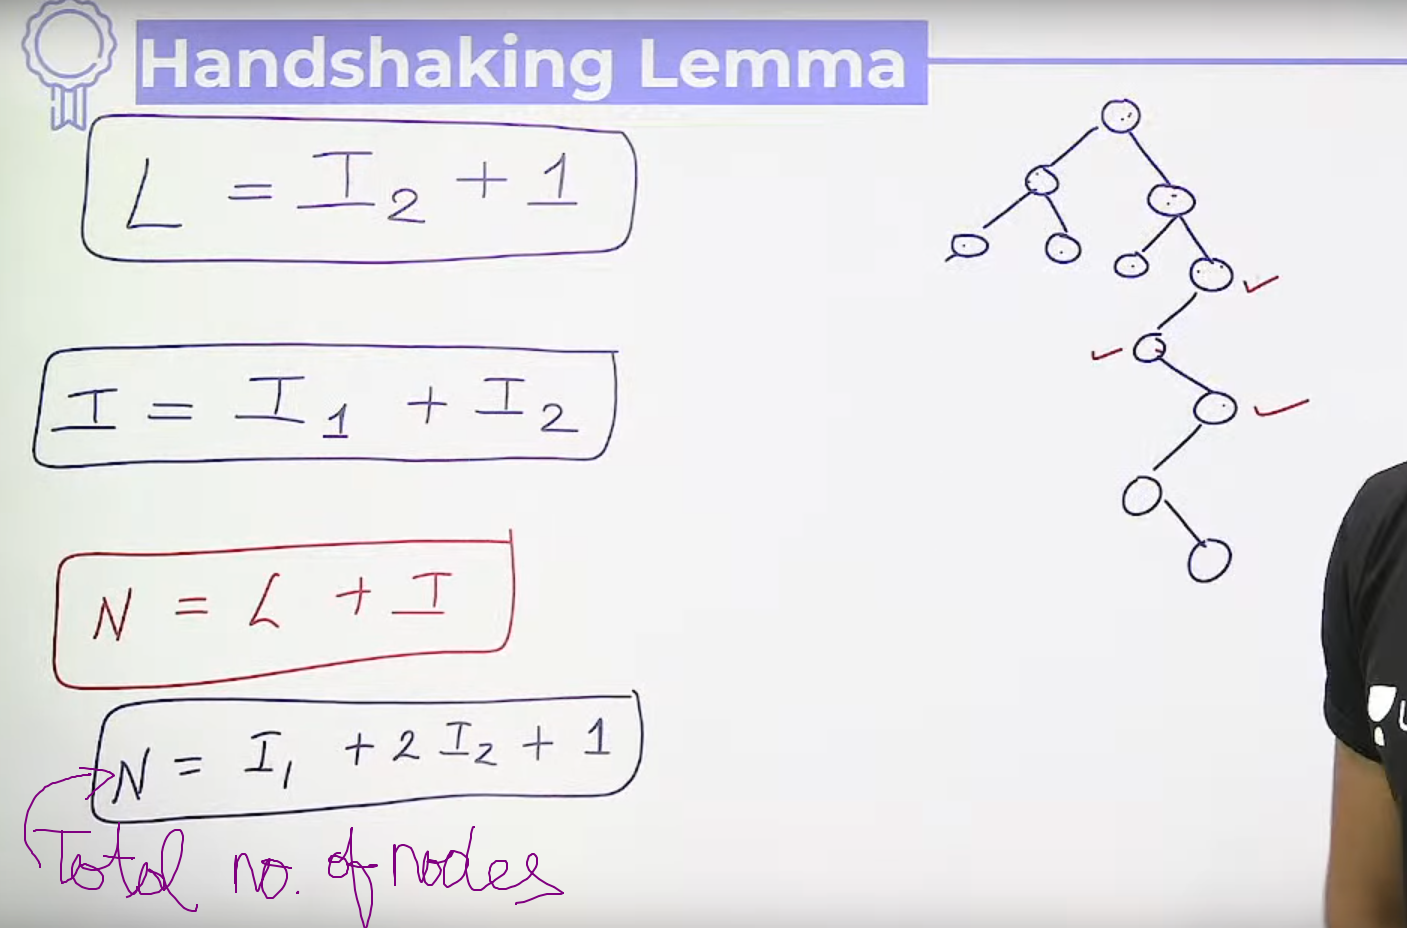 Handshaking Lemma
L = I₂ + 1
I = I₁ + I₂
N = L + I
N = I₁ + 2I₂ + 1
Total no. of nodes